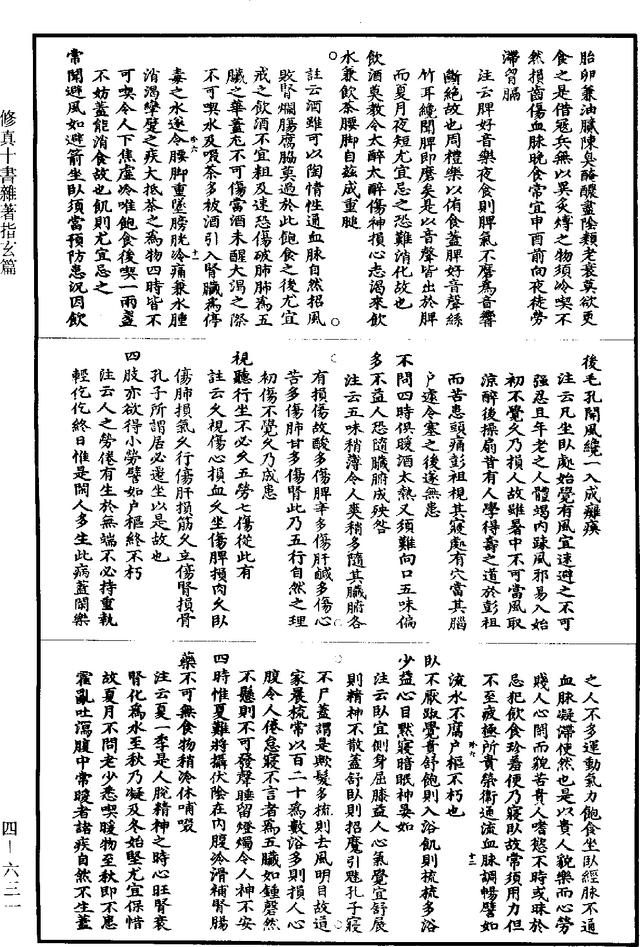 胎卵兼油膩陳臭醃醲盡陰類老衰莫欲更
食之是借寇兵無以異炙煿之物須冷喫不
然損齒傷血脉晚食常宜申酉前向夜徒勞
滯胷膈
註云脾好音樂夜食則脾氣不磨爲音響
斷絶故也周禮樂以侑食蓋脾好音聲絲
竹耳纔聞脾即磨矣是以音聲皆出於脾
而夏月夜短尤宜忌之恐難消化故也
飲酒莫教令太醉太醉傷神損心志渴來飲
水兼飲茶腰脚自兹成重腿
註云酒雖可以陶情性通血脉自然招風
敗腎爛腸腐脇莫過於此飽食之後尤宜
戒之飲酒不宜粗及速恐傷破肺肺爲五
臟之華蓋尤不可傷當酒未醒大渴之際
不可喫水及啜茶多被酒引入腎臟爲停
毒之水遂令腰脚重墜膀胱冷痛兼水腫
消渴攣躄之疾大抵茶之爲物四時皆不
可喫令人下焦虛冷唯飽食後喫一兩盞
不妨蓋能消食故也飢則尤宜忌之
常聞避風如避箭坐臥須當預防患況因飲
後毛孔開風纔一入成癱瘓
註云凡坐臥處始覺有風宜速避之不可
強忍且年老之人體竭内踈風邪易入始
初不覺久乃損人故雖暑中不可當風取
凉醉後操扇昔有人學得壽之道於彭祖
而苦患頭痛彭祖視其寢處有穴當其腦
户遽令塞之後遂無患
不問四時俱暖酒太熱又須難向口五味偏
多不益人恐隨臟腑成殃咎
註云五味稍薄令人爽稍多隨其臟腑各
有損傷故酸多傷脾辛多傷肝鹹多傷心
苦多傷肺甘多傷腎此乃五行自然之理
初傷不覺久乃成患
視聽行坐不必久五勞七傷從此有
註云久視傷心損血久坐傷脾損肉久臥
傷肺損氣久行傷肝損筋久立傷腎損骨
孔子所謂居必遷坐以是故也
四肢亦欲得小勞譬如户樞終不朽
註云人之勞倦有生於無端不必持重執
輕仡仡終日惟是閑人多生此病蓋閑樂
之人不多運動氣力飽食坐臥經脉不通
血脉凝滯使然也是以貴人貌樂而心勞
賤人心閑而貌苦貴人嗜慾不時或昧於
忌犯飲食珍羞便乃寢臥故常須用力但
不至疲極所貴榮衛通流血脉調暢譬如
流水不腐户樞不朽也
臥不厭踧覺貴舒飽則入浴飢則梳梳多浴
少益心目默寢暗眠神晏如
註云臥宜側身屈膝益人心氣覺宜舒展
則精神不散蓋舒臥則招魔引魅孔子寢
不尸蓋謂是歟髮多梳則去風明目故道
家晨梳常以百二十爲數浴多則損人心
腹令人倦怠寢不言者爲五臟如鍾磬然
不懸則不可發聲睡留燈燭令人神不安
四時惟夏難將攝伏陰在内腹冷滑補腎腸
藥不可無食物稍冷休哺啜
註云夏一季是人脫精神之時心旺腎衰
腎化爲水至秋乃凝及冬始堅尤宜保惜
故夏月不問老少悉喫暖物至秋即不患
霍亂吐瀉腹中常暖者諸疾自然不生蓋
修真十書雜著指玄篇
四—六三一